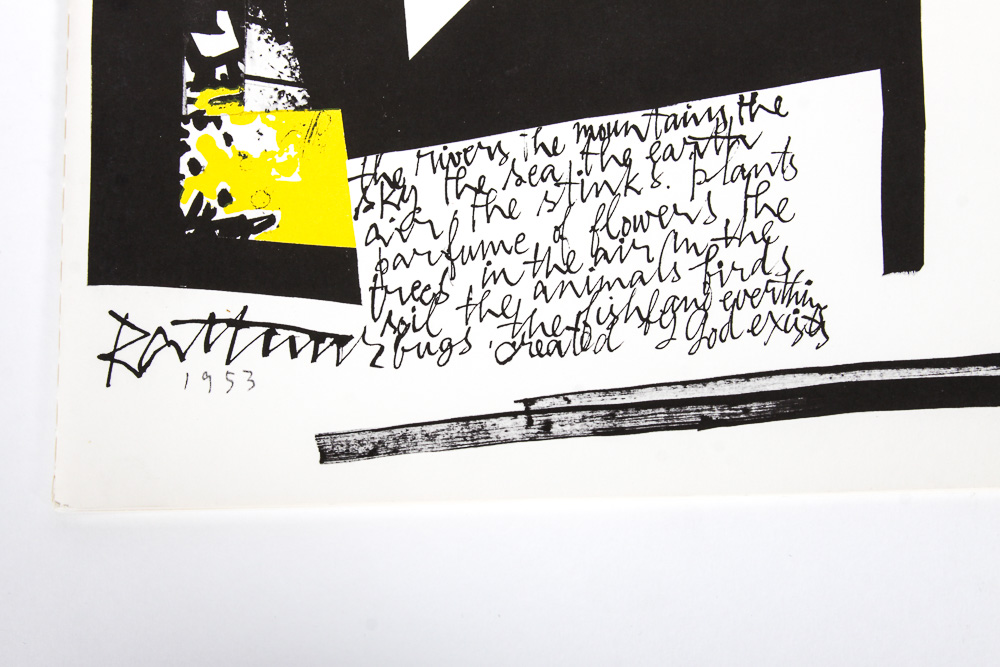 the rivers the mountains, the
sky the sea the earth
air the stinks. plants
parfume of flowers the
trees in the air in the
soil the animals birds,
bugs. the fish and everthing
created by God exists
1953